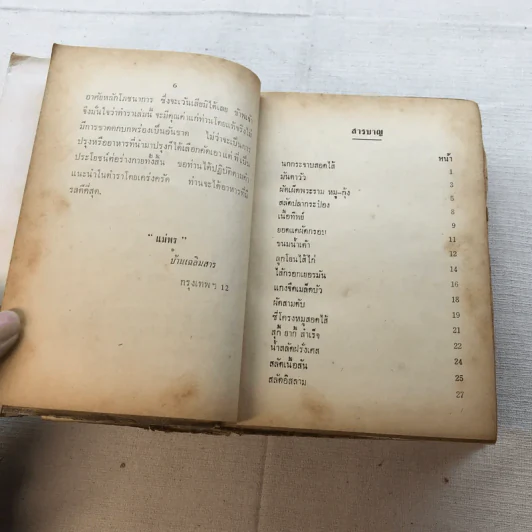 6
อาศัยหลักโภชนาการ ซึ่งจะเว้นเสียมิได้เลย ข้าพเจ้า
จึงมั่นใจว่าตำราเล่มนี้ จะมีคุณค่า แก่ท่านโดยแท้จริง ไม่
มีการขาดตกบกพร่องเป็นอันขาด ไม่ว่าจะเป็นการ
ปรุงหรืออาหารที่นำมาปรุงก็ได้เลือกคัดเอาแต่ที่เป็น
ประโยชน์ต่อร่างกายทั้งสิ้น ขอท่านได้ปฏิบัติตามคำ
แนะนำในตำราโดยเคร่งครัด ท่านจะได้อาหารที่มี
รสดีที่สุด.
“แม่พร”
บ้านเฉลิมสาร
กรุงเทพฯ 12
สารบาญ
หน้า
นกกระจาบสอดไส้ 1
มันดาวัว 3
ผัดเผ็ดพระราม หมู-กุ้ง 5
สลัดปลากระป๋อง 6
เนื้อทิพย์ 8
ยอดแคผัดกรอบ 9
ขนมน้ำเต้า 11
ลูกโลนไส้ไก่ 12
ไส้กรอกเยอรมัน 14
แกงจืดเมล็ดบัว 16
ผัดสามดับ 18
ซี่โครงหมูสอดไส้ 19
สุกี้ ยากี้ สำเร็จ 21
น้ำสลัดฝรั่งเศส 22
สลัดเนื้อสัน 24
สลัดอิสลาม 25
27